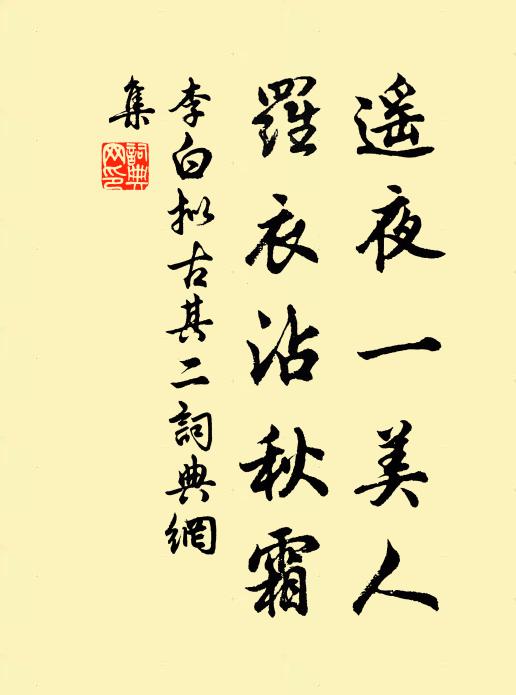 遥夜一美人
羅衣沾秋霜
李白拟古其二詞典網
集
詞典
网印